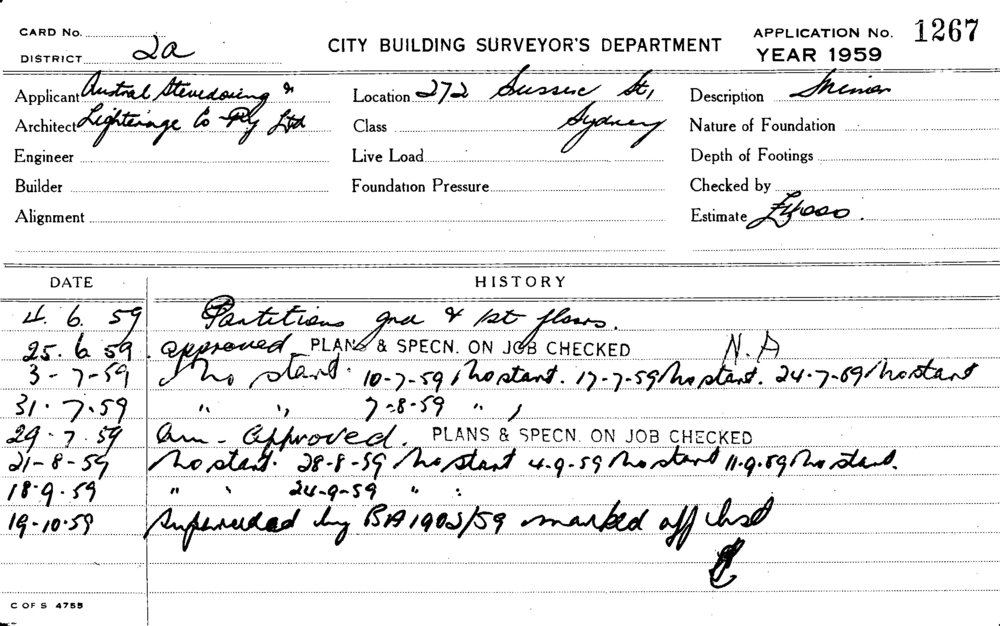 CARD No.
DISTRICT 2a
CITY BUILDING SURVEYOR'S DEPARTMENT
APPLICATION No. 1267
YEAR 1959
Applicant Austral Stevedoring &
Architect Lighterage Co Pty Ltd
Engineer
Builder
Alignment
Location 272 Sussex St,
Class Sydney
Live Load
Foundation Pressure
Description Minor
Nature of Foundation
Depth of Footings
Checked by
Estimate £4000.
DATE HISTORY
4. 6. 59 Partitions gnd & 1st floors.
25. 6. 59. approved PLANS & SPECN. ON JOB CHECKED N.A
3-7-59 No start. 10-7-59 No start. 17-7-59 No start. 24-7-59 No start
31. 7. 59 " " 7-8-59 " "
29. 7. 59 am - approved. PLANS & SPECN. ON JOB CHECKED
21-8-59 No start. 28-8-59 No start 4-9-59 No start 11.9.59 No start.
18.9.59 " " 24-9-59 " "
19-10-59 Superseded by BA 1902/59 marked off list
C OF S 4755